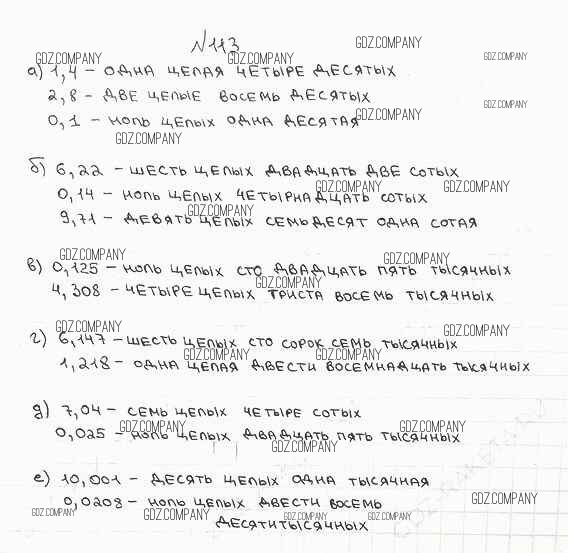 №113
GDZ.COMPANY GDZ.COMPANY GDZ.COMPANY GDZ.COMPANY
а) 1,4 – одна целая четыре десятых
2,8 – две целые восемь десятых
GDZ.COMPANY
0,1 – ноль целых одна десятая GDZ.COMPANY
GDZ.COMPANY
б) 6,22 – шесть целых двадцать две сотых
GDZ.COMPANY GDZ.COMPANY
0,14 – ноль целых четырнадцать сотых
GDZ.COMPANY
9,71 – девять целых семьдесят одна сотая
GDZ.COMPANY GDZ.COMPANY
в) 0,125 – ноль целых сто двадцать пять тысячных
GDZ.COMPANY
4,308 – четыре целых триста восемь тысячных
GDZ.COMPANY GDZ.COMPANY
г) 6,147 – шесть целых сто сорок семь тысячных
GDZ.COMPANY GDZ.COMPANY
1,218 – одна целая двести восемнадцать тысячных
д) 7,04 – семь целых четыре сотых
GDZ.COMPANY GDZ.COMPANY
0,025 – ноль целых двадцать пять тысячных
GDZ.COMPANY
е) 10,001 – десять целых одна тысячная
0,0208 – ноль целых двести восемь GDZ.COMPANY
GDZ.COMPANY GDZ.COMPANY GDZ.COMPANY GDZ.COMPANY
десятитысячных